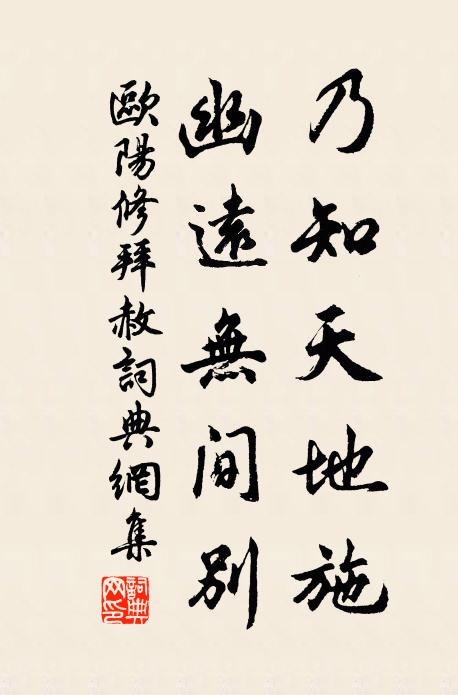 乃知天地施
幽遠無間別
歐陽修拜赦詞典網集
詞典
网印